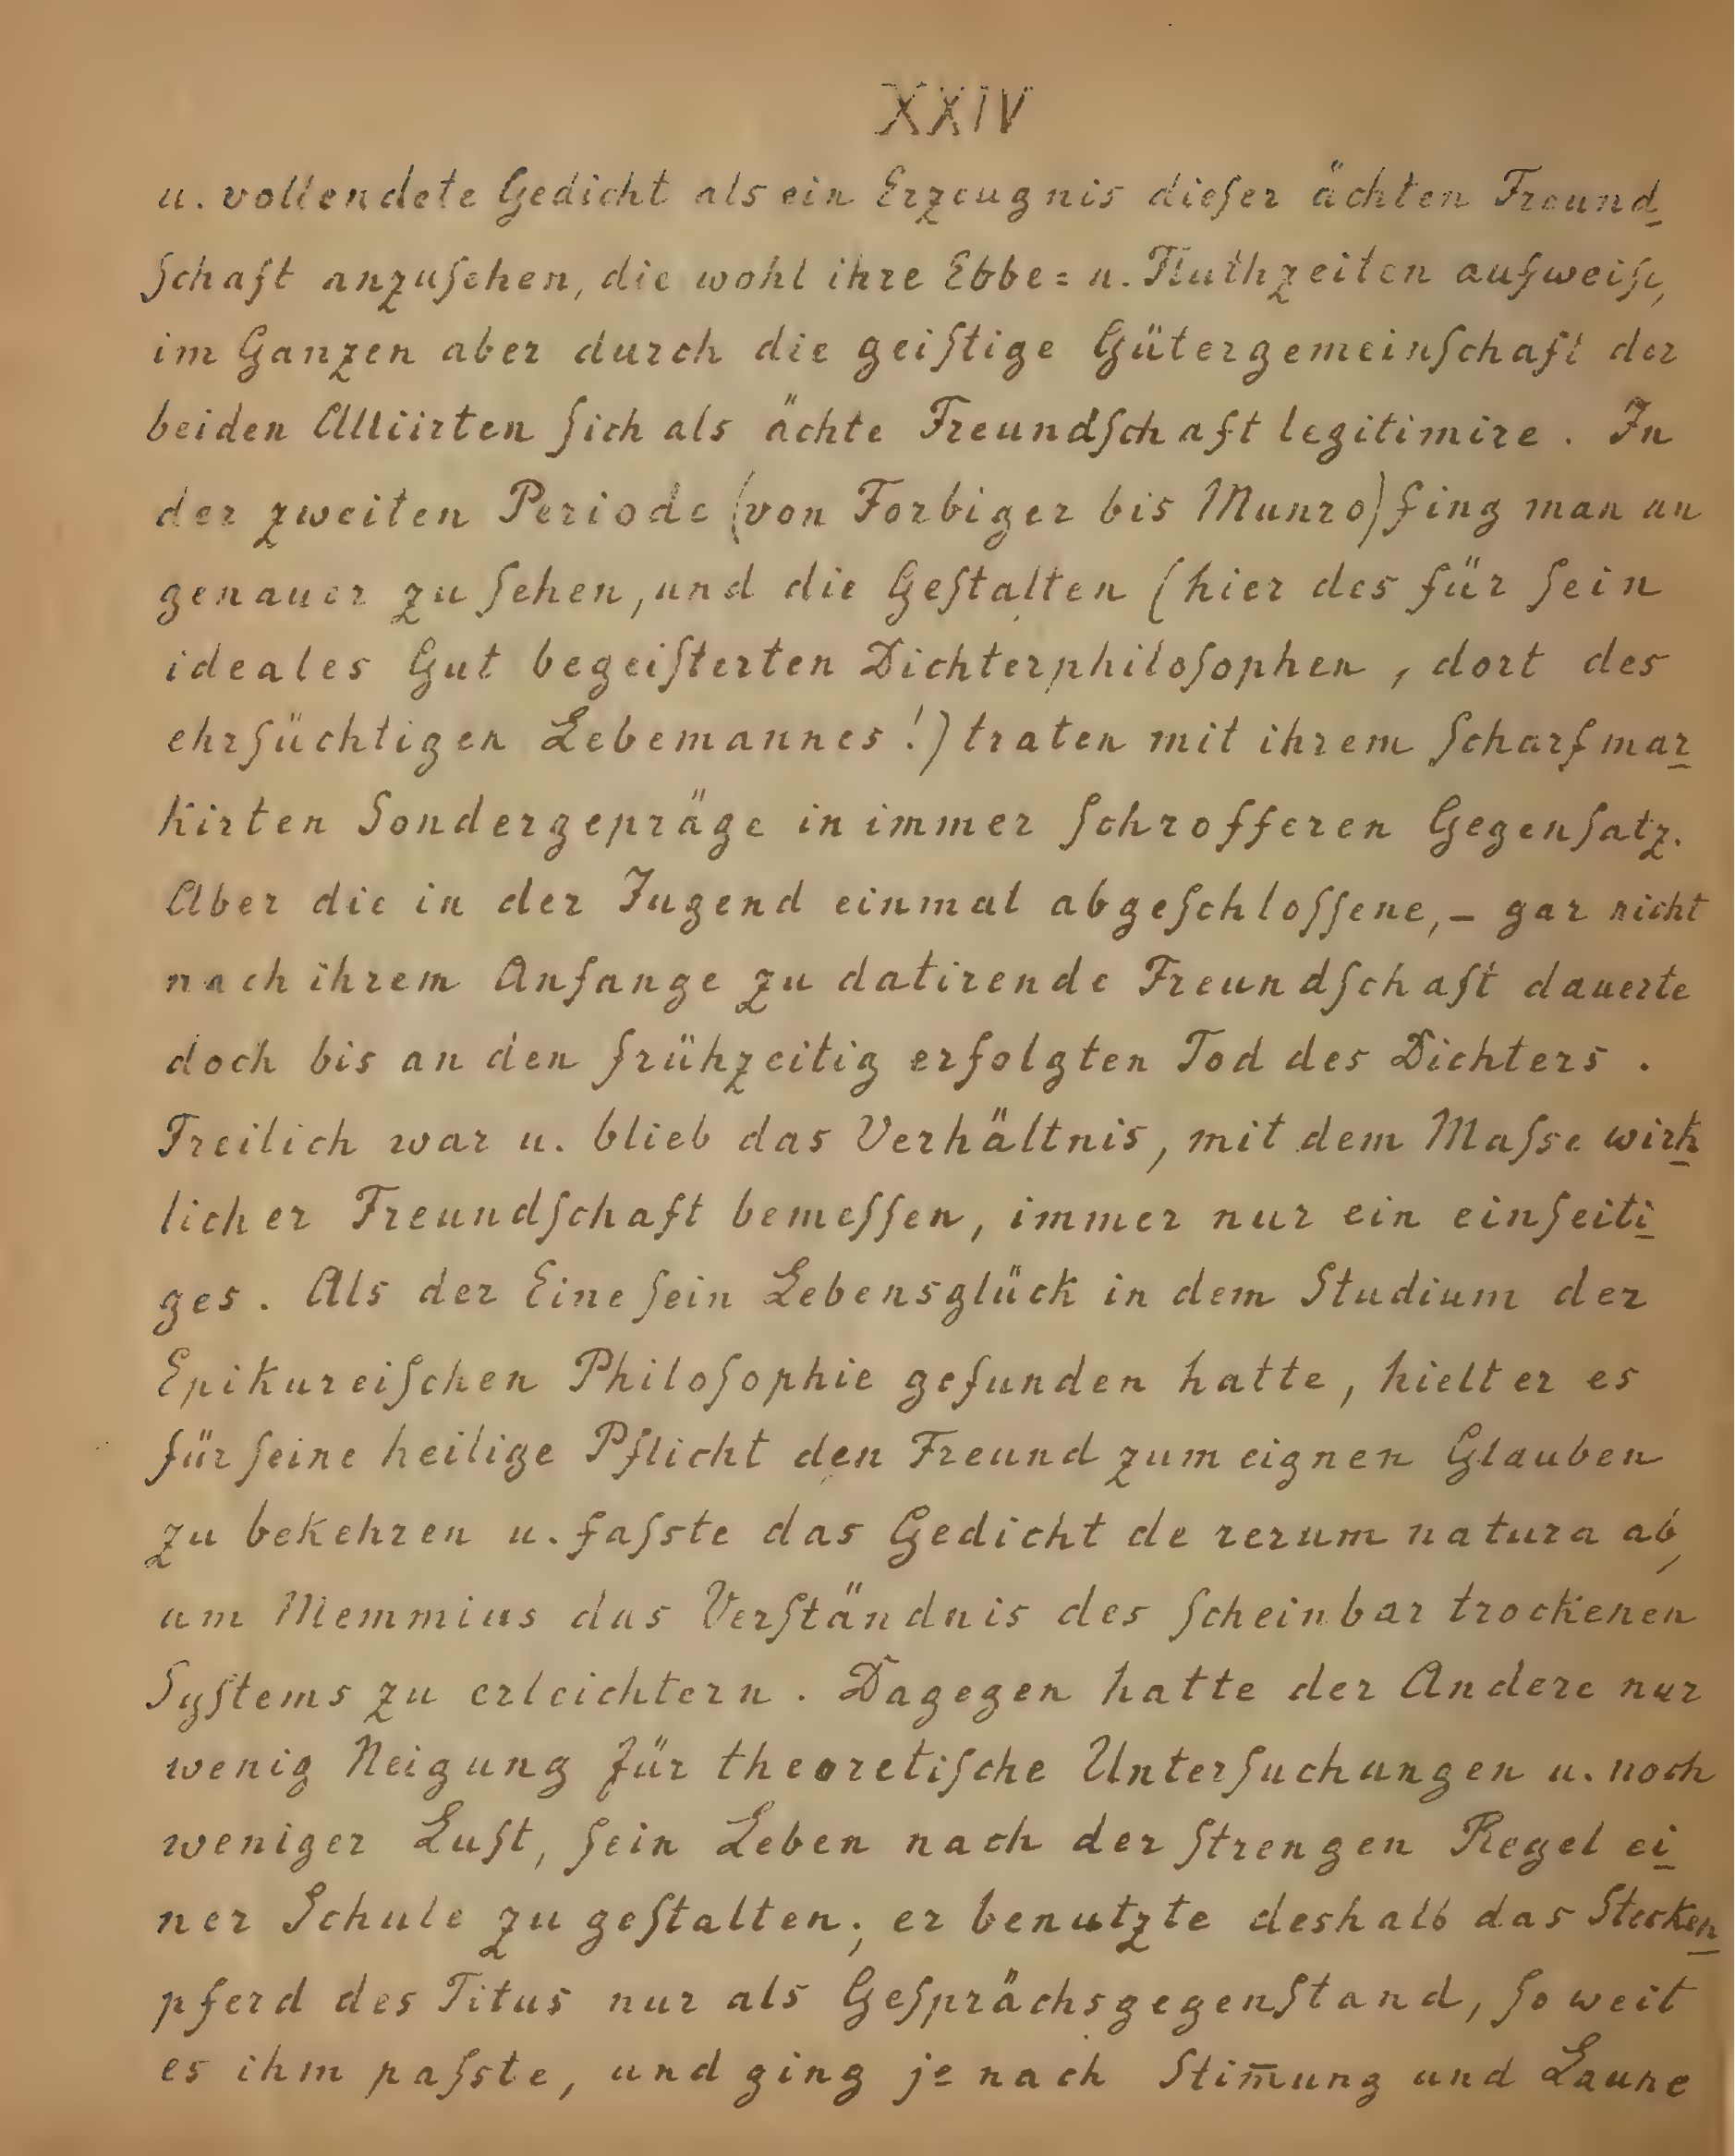 XXIV
u. vollendete Gedicht als ein Erzeugnis dieſer ächten Freund_
ſchaft anzuſehen, die wohl ihre Ebbe= u. Fluthzeiten aufweiſe,
im Ganzen aber durch die geiſtige Gütergemeinſchaft der
beiden Alliirten ſich als ächte Freundſchaft legitimire. In
der zweiten Periode (von Forbiger bis Munro) fing man an
genauer zu ſehen, und die Geſtalten (hier des für ſein
ideales Gut begeiſterten Dichterphiloſophen, dort des
ehrſüchtigen Lebemannes!) traten mit ihrem ſcharfmar_
kirten Sondergepräge in immer ſchrofferen Gegenſatz.
Aber die in der Jugend einmal abgeſchloſſene, – gar nicht
nach ihrem Anfange zu datirende Freundſchaft dauerte
doch bis an den frühzeitig erfolgten Tod des Dichters.
Freilich war u. blieb das Verhältnis, mit dem Maſse wirk_
licher Freundſchaft bemeſſen, immer nur ein einſeiti_
ges. Als der Eine ſein Lebensglück in dem Studium der
Epikureiſchen Philoſophie gefunden hatte, hielt er es
für ſeine heilige Pflicht den Freund zum eignen Glauben
zu bekehren u. faſste das Gedicht de rerum natura ab,
um Memmius das Verſtändnis des ſcheinbar trockenen
Syſtems zu erleichtern. Dagegen hatte der Andere nur
wenig Neigung für theoretiſche Unterſuchungen u. noch
weniger Luſt, ſein Leben nach der ſtrengen Regel ei_
ner Schule zu geſtalten; er benutzte deshalb das Stecken_
pferd des Titus nur als Geſprächsgegenſtand, ſo weit
es ihm paſste, und ging je nach Stim̄ung und Laune